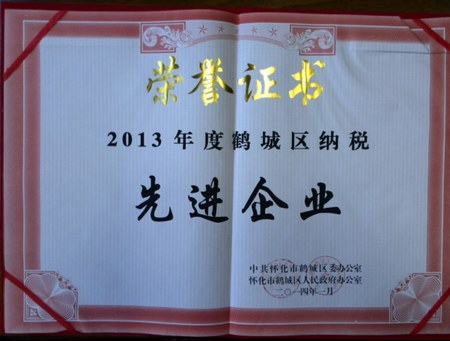 荣誉证书
2013年度鹤城区纳税
先进企业
中共怀化市鹤城区委办公室
怀化市鹤城区人民政府办公室
二〇一四年二月